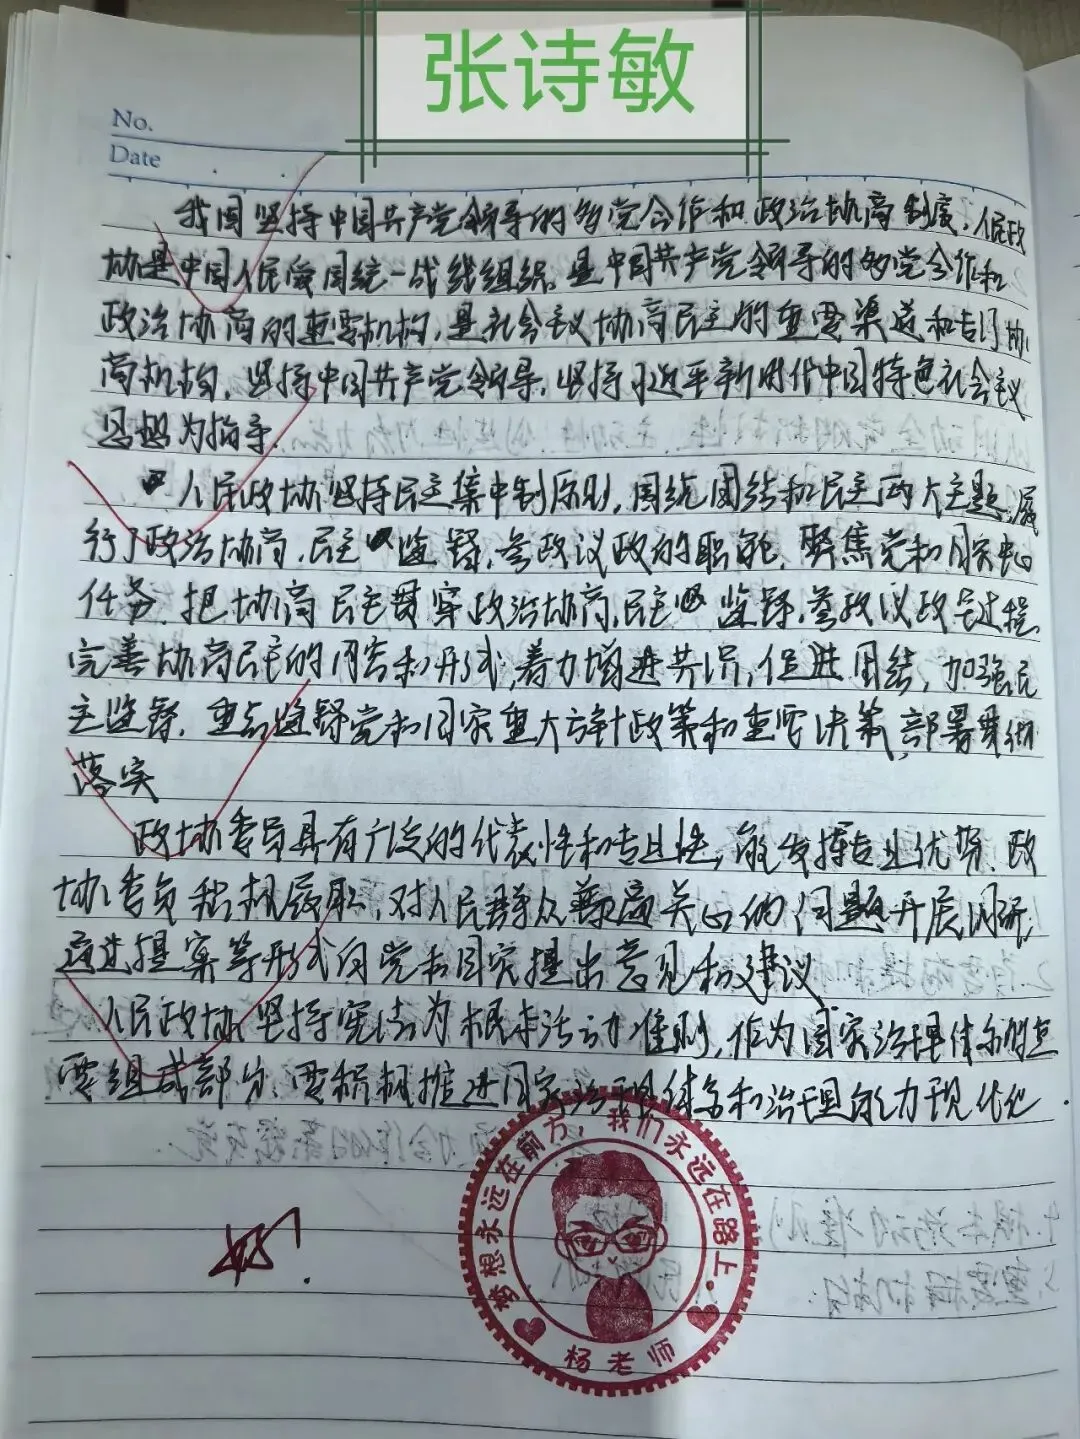 张诗敏
No.
Date
我国坚持中国共产党领导的多党合作和政治协商制度,人民政
协是中国人民爱国统一战线组织,是中国共产党领导的多党合作和
政治协商的重要机构,是社会主义协商民主的重要渠道和专门协
商机构,坚持中国共产党领导,坚持习近平新时代中国特色社会主义
思想为指导.
人民政协坚持民主集中制原则,围绕团结和民主两大主题,履
行了政治协商,民主监督,参政议政的职能,聚焦党和国家中心
任务,把协商民主贯穿政治协商,民主监督,参政议政全过程
完善协商民主的内容和形式,着力增进共识,促进团结,加强民
主监督,重点监督党和国家重大方针政策和重要决策,部署贯彻
落实
政协委员具有广泛的代表性和专业性,能发挥专业优势,政
协委员积极履职,对人民群众普遍关心的问题开展调研,
通过提案等形式向党和国家提出意见和建议
人民政协坚持宪法为根本活动准则,作为国家治理体系的重
要组成部分,要积极推进国家治理体系和治理能力现代化.
好!
梦想永远在前方,我们永远在路上.
杨老师